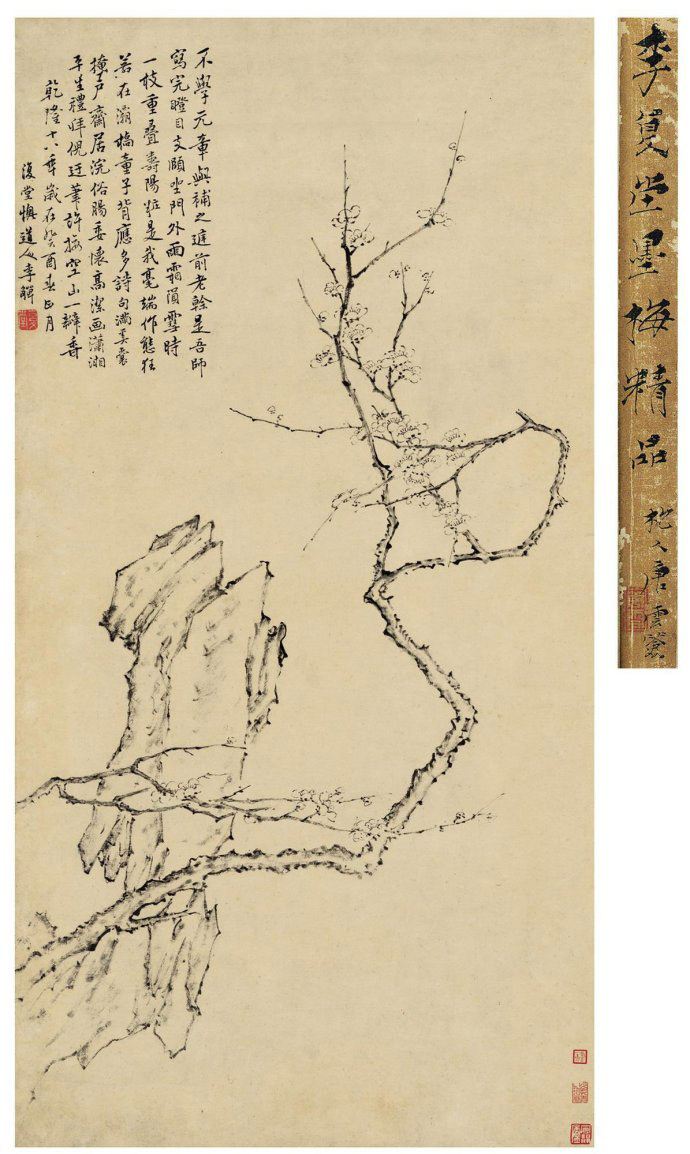 不學元章與補之庭前老榦是吾師
寫完瞪目支頤坐門外雨霜雪時
一枝重疊壽陽粧是我毫端作態狂
若在灞橋童子背應多詩句滿奚囊
掩戶齋居浣俗腸委懷高潔画瀟湘
平生禮拜倪迂筆許梅空山一瓣香
乾隆十八年歲在癸酉春正月
復堂懊道人李鱓
李复堂墨梅精品
杭人唐雲